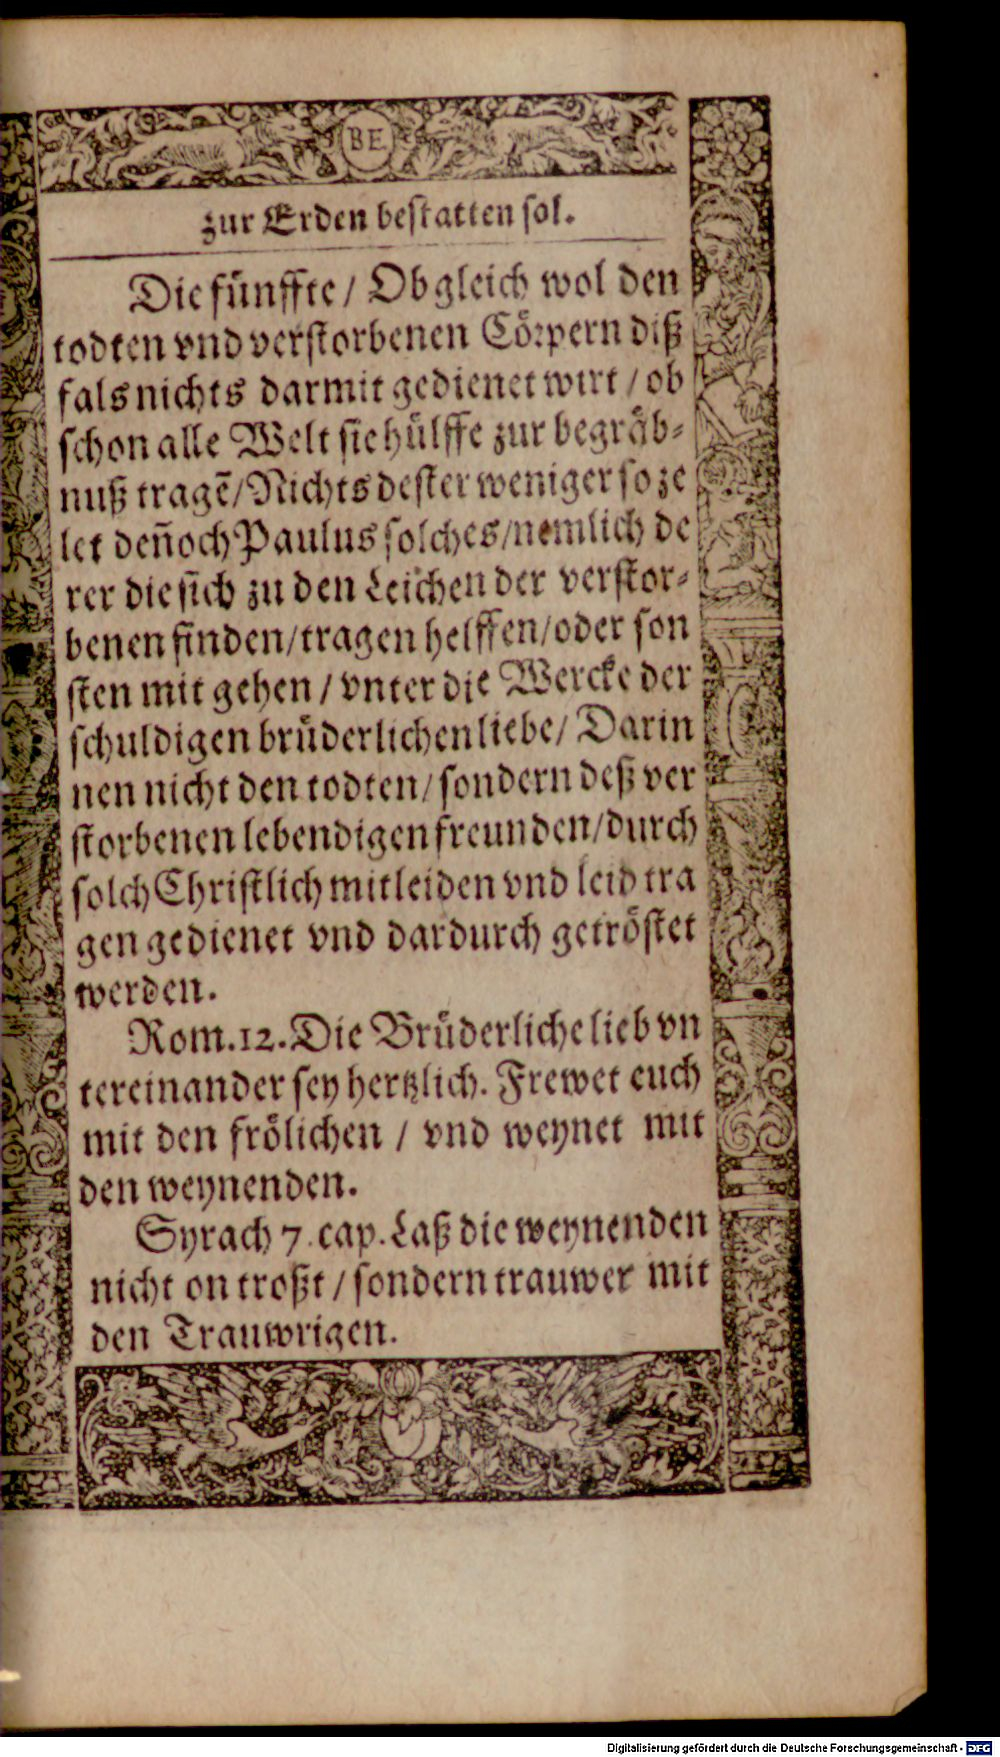 BE
zur Erden bestatten sol.
Die fünffte / Ob gleich wol den
todten vnd verstorbenen Cörpern diß
fals nichts darmit gedienet wirt / ob
schon alle Welt sie hülffe zur begräb⸗
nuß tragẽ/Nichts dester weniger so ze
let deñoch Paulus solches/nemlich de
rer die sich zu den Leichen der verstor⸗
benen finden/tragen helffen/oder son
sten mit gehen / vnter die Wercke der
schuldigen brüderlichen liebe/ Darin
nen nicht den todten/sondern deß ver
storbenen lebendigen freunden/durch
solch Christlich mitleiden vnd leid tra
gen gedienet vnd dardurch getröstet
werden.
Rom.12. Die Brüderliche lieb vn
tereinander sey hertzlich. Frewet euch
mit den frölichen / vnd weynet mit
den weynenden.
Syrach 7. cap. Laß die weynenden
nicht on troßt / sondern trauwer mit
den Trauwrigen.
Digitalisierung gefördert durch die Deutsche Forschungsgemeinschaft - DFG